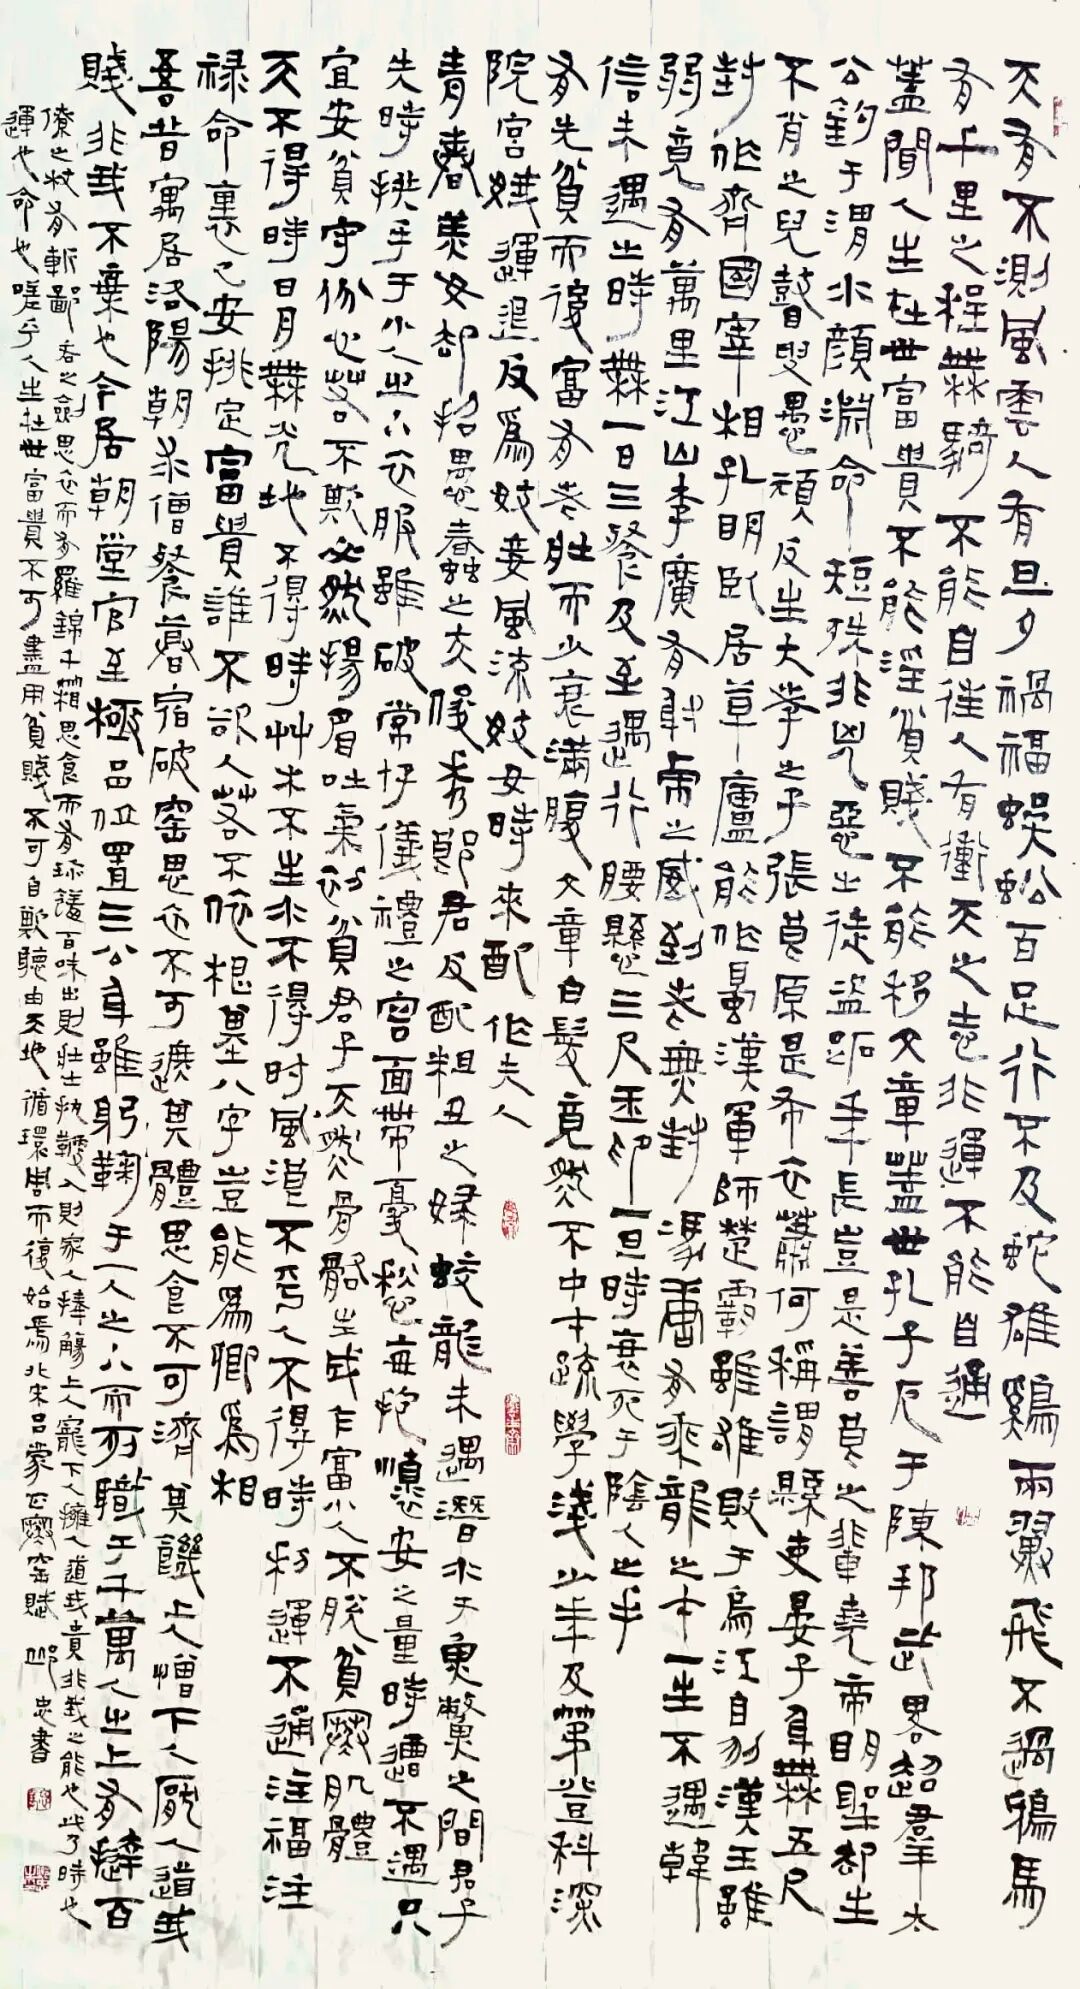 天有不測風雲人有旦夕禍福蜈蚣百足行不及蛇雄鷄兩翼飛不過鴉馬
有千里之程無騎不能自往人有衝天之志非運不能自通
蓋聞人生在世富貴不能淫貧賤不能移文章蓋世孔子厄于陳邦武畧超羣太
公釣于渭水顏淵命短殊非凶惡之徒盜跖年長豈是善良之輩堯帝明聖却生
不肖之兒瞽叟愚頑反生大孝之子張良原是布衣蕭何稱謂縣吏晏子身無五尺
封作齊國宰相孔明臥居草廬能作蜀漢軍師楚霸雖雄敗于烏江自刎漢王雖
弱竟有萬里江山李廣有射虎之威到老無封馮唐有乘龍之才一生不遇韓
信未遇之時無一日三餐及至遇行腰懸三尺玉印一旦時衰死于陰人之手
有先貧而後富有老壯而少衰滿腹文章白髮竟然不中才疏學淺少年及第登科深
院宮娥運退反爲妓妾風流妓女時來配作夫人
青春美女却招愚蠢之夫俊秀郎君反配粗丑之婦蛟龍未遇潛水于魚鱉之間君子
失時拱手于小人之下衣服雖破常存儀禮之容面帶憂愁每抱懷安之量時遭不遇只
宜安貧守份心若不欺必然揚眉吐氣初貧君子天然骨骼生成乍富小人不脫貧寒肌體
天不得時日月無光地不得時草木不生水不得时風浪不平人不得時利運不通注福注
禄命裏已安排定富貴誰不欲人若不依根基八字豈能爲卿爲相
吾昔寓居洛陽朝求僧餐暮宿破窑思衣不可遮其體思食不可濟其饑上人憎下人厭人道我
賤非我不棄也今居朝堂官至極品位置三公身雖躬鞠于一人之下而列職于千萬人之上有撻百
僚之杖有斬鄙吝之劍思衣而有羅錦千箱思食而有珍饈百味出則壯士執鞭入則家人捧觴上人寵下人擁人道我貴非我之能也此乃時也
運也命也嗟乎人生在世富貴不可盡用貧賤不可自欺聽由天地循環周而復始焉北宋呂蒙正寒窑賦 忠書